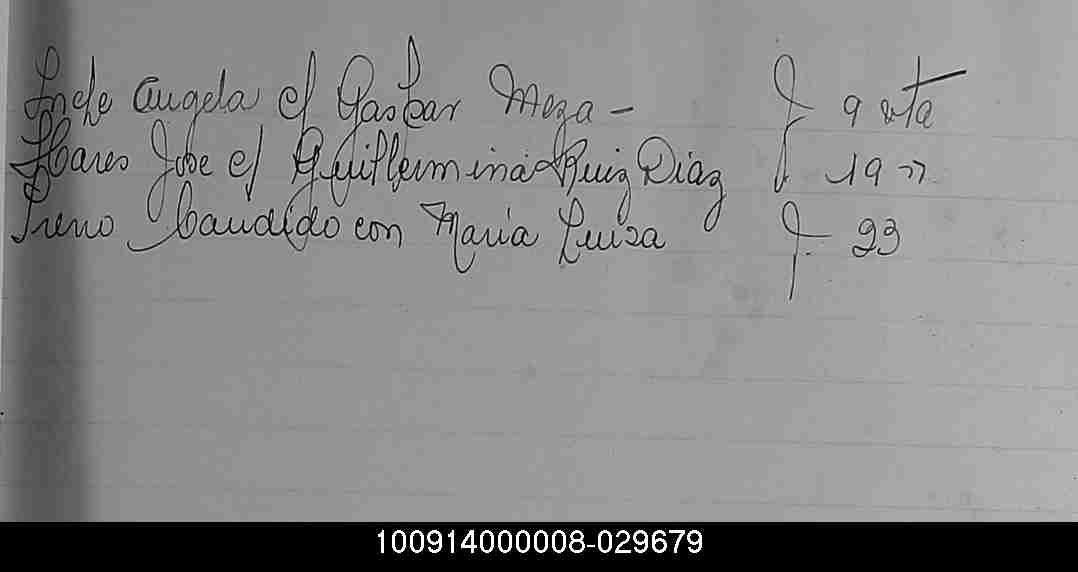 Angela c/ Gaspar Meza - F 9 vta
Jose c/ Guillermina Ruiz Diaz F 19 "
Candido con Maria Luisa F. 23
100914000008-029679